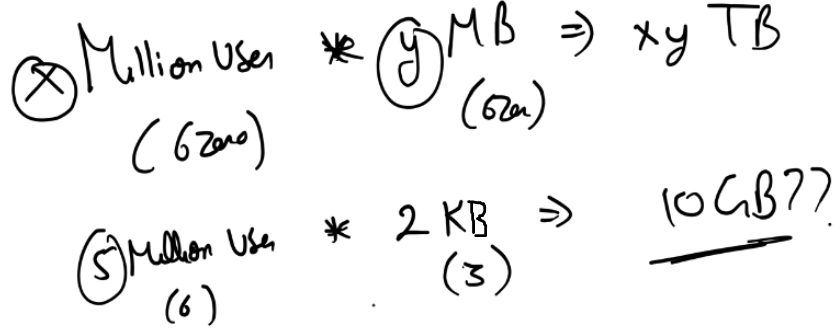 x Million User * y MB ⇒ xy TB
(6 zero) (6 zer)
5 Million User * 2 KB ⇒ 10 GB??
(6) (3)